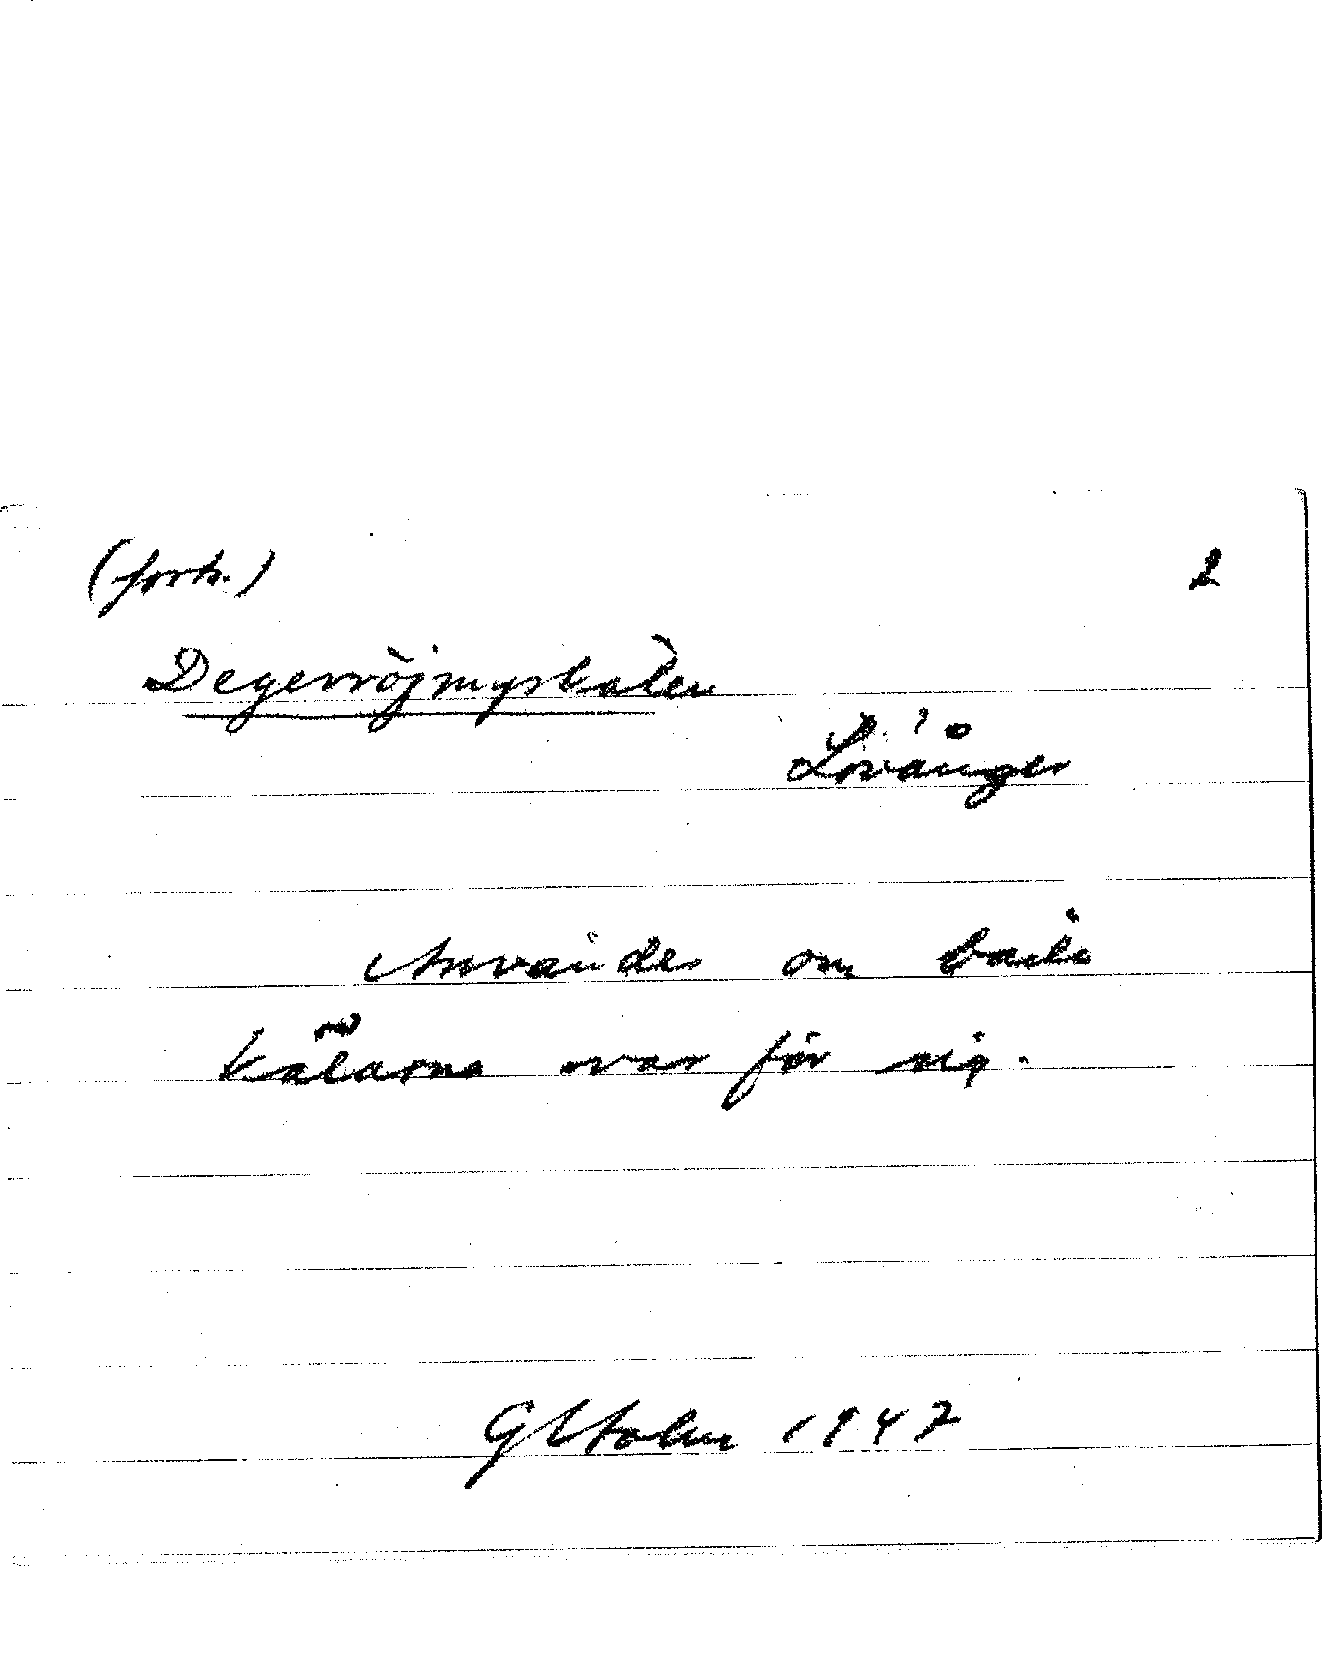 (forts.) 2
Degerröjmyrkålen
Lövånger
Användes om båda
kålarna var för sig.
G Holm 1947